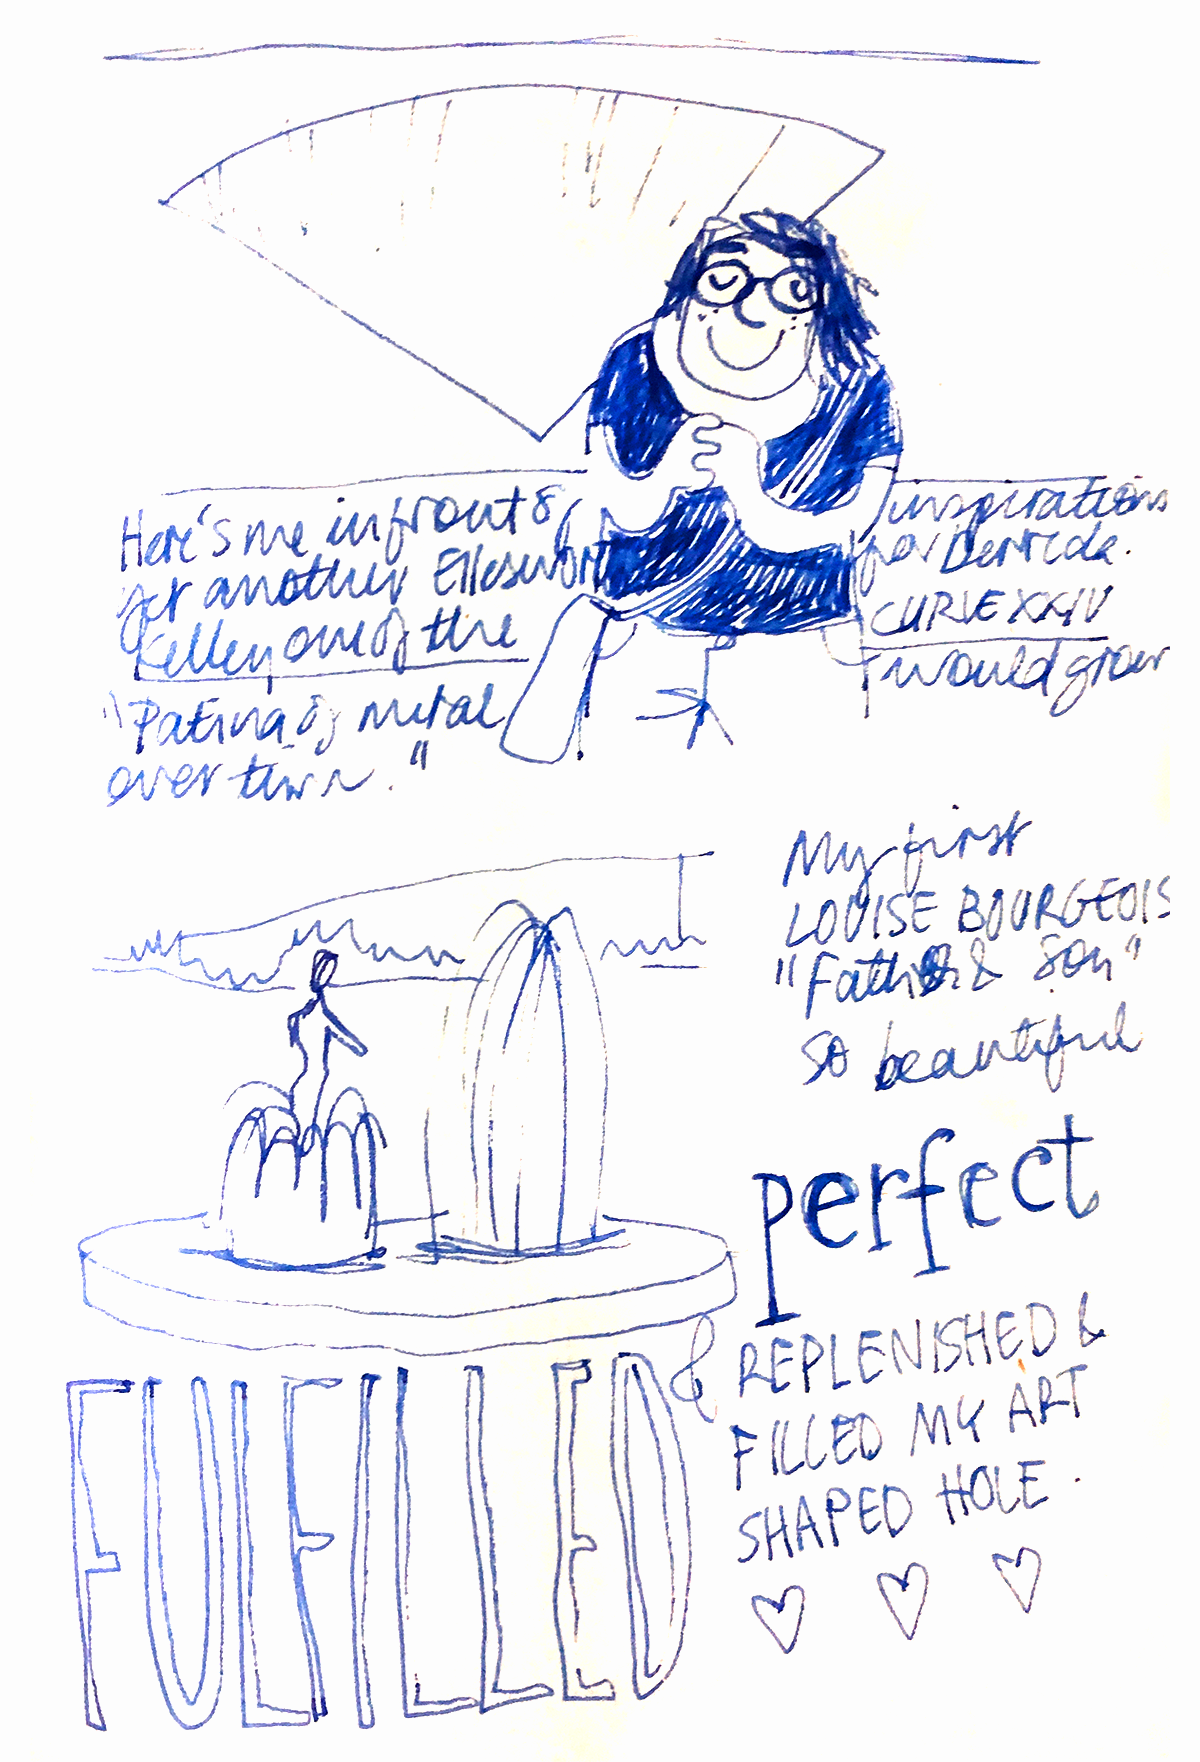 Here's me infront of
yet another Ellesworth
Kelley one of the
"Patina of metal
over time."
inspirations
for Derrida.
CURVE XXIV
would grow
My first
LOUISE BOURGEOIS
"Father & Son"
so beautiful
perfect
FULFILLED
& REPLENISHED &
FILLED MY ART
SHAPED HOLE.